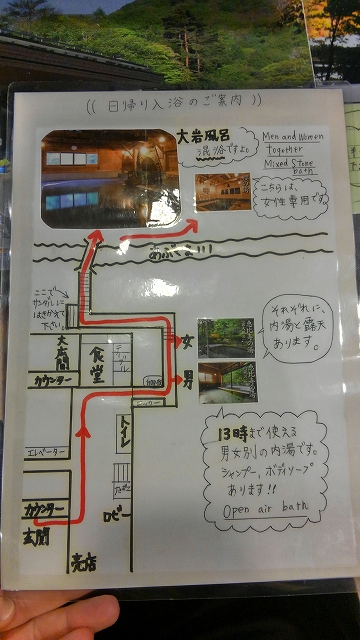 (( 日帰り入浴のご案内 ))
大岩風呂
混浴ですよ。
Men and Women
together
Mixed Stone
bath
こちらは、
女性専用です。
あぶくま川
ここで
サンダルに
はきかえて
下さい。
それぞれに、
内湯と露天
あります。
女
男
大広間
食堂
テーブル
カウンター
トイレ
エレベーター
カウンター
玄関
ロビー
売店
13時まで使える
男女別の内湯です。
シャンプー、ボディソープ
あります!!
Open air bath